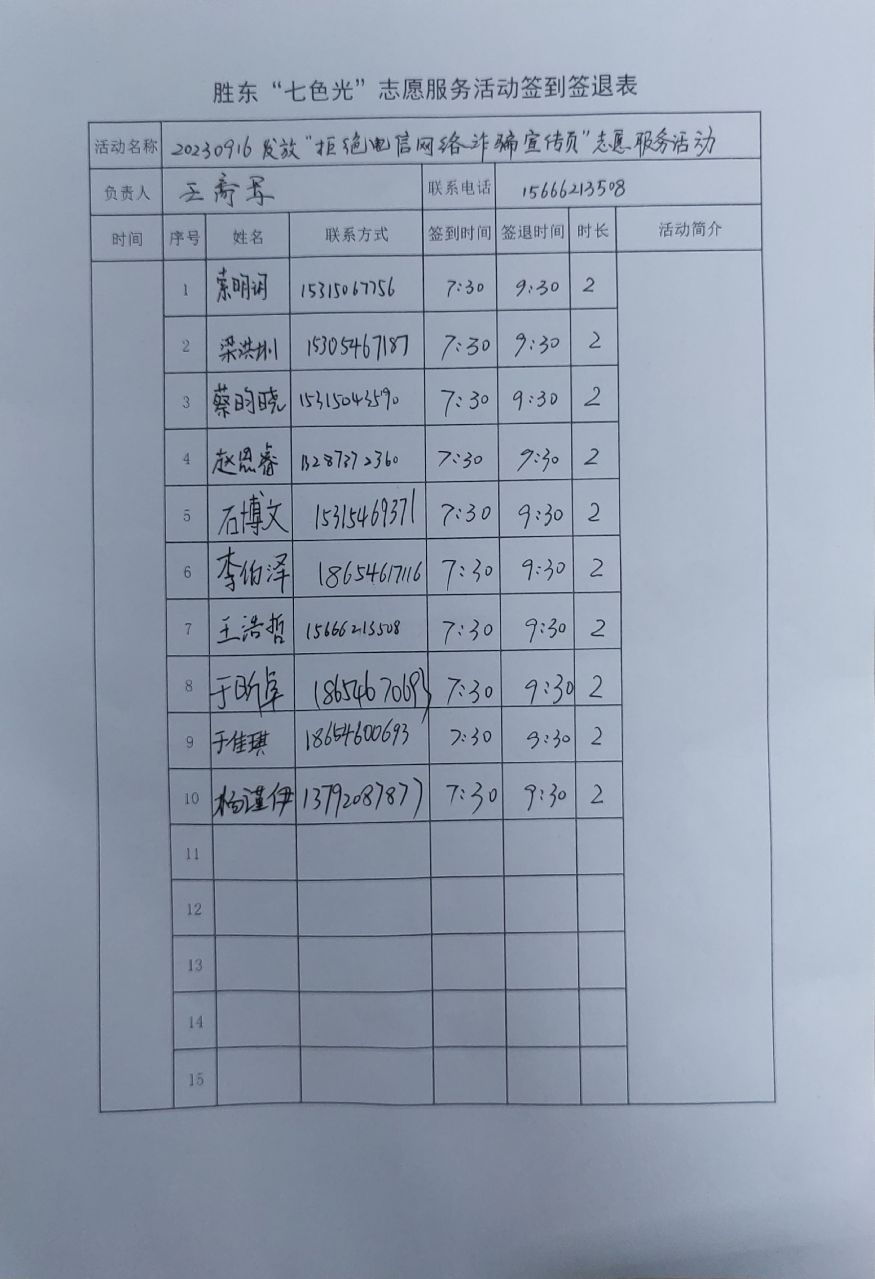 胜东“七色光”志愿服务活动签到签退表
活动名称 20230916发放“拒绝电信网络诈骗宣传页”志愿服务活动
负责人 王 联系电话 15666213508
时间 序号 姓名 联系方式 签到时间 签退时间 时长 活动简介
1 索明润 15315067756 7:30 9:30 2
2 梁洪圳 15305467187 7:30 9:30 2
3 蔡昀晓 15315043590 7:30 9:30 2
4 赵恩睿 13287372360 7:30 9:30 2
5 石博文 15315469371 7:30 9:30 2
6 李伯泽 18654617116 7:30 9:30 2
7 王浩哲 15666213508 7:30 9:30 2
8 于昕卓 18654670693 7:30 9:30 2
9 于佳琪 18654600693 7:30 9:30 2
10 杨谨伊 13792087877 7:30 9:30 2
11
12
13
14
15